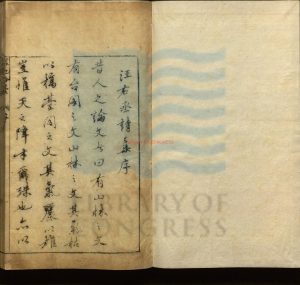 汪右丞詩集序
昔人之論文者曰有山林之文
有台閣之文山林之文其氣枯
以槁臺閣之文其氣麗以雄
豈惟天之降才爾殊也亦以
LIBRARY OF
CONGRESS